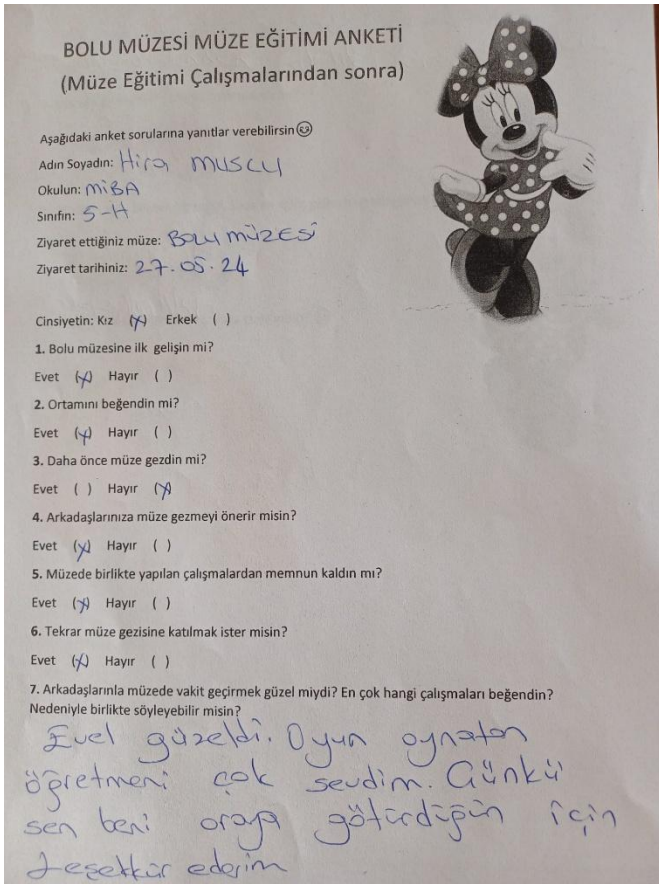 BOLU MÜZESİ MÜZE EĞİTİMİ ANKETİ
(Müze Eğitimi Çalışmalarından sonra)
Aşağıdaki anket sorularına yanıtlar verebilirsin☺
Adın Soyadın: Hira MUSCU
Okulun: MİBA
Sınıfın: 5-H
Ziyaret ettiğiniz müze: BOLU MÜZESİ
Ziyaret tarihiniz: 27.05.24
Cinsiyetin: Kız (X) Erkek ( )
1. Bolu müzesine ilk gelişin mi?
Evet (X) Hayır ( )
2. Ortamını beğendin mi?
Evet (X) Hayır ( )
3. Daha önce müze gezdin mi?
Evet ( ) Hayır (X)
4. Arkadaşlarınıza müze gezmeyi önerir misin?
Evet (X) Hayır ( )
5. Müzede birlikte yapılan çalışmalardan memnun kaldın mı?
Evet (X) Hayır ( )
6. Tekrar müze gezisine katılmak ister misin?
Evet (X) Hayır ( )
7. Arkadaşlarınla müzede vakit geçirmek güzel miydi? En çok hangi çalışmaları beğendin?
Nedeniyle birlikte söyleyebilir misin?
Evet güzeldi. Oyun oynatan
öğretmeni çok sevdim. Günkü
sen beni oraya götürdüğün için
teşekkür ederim